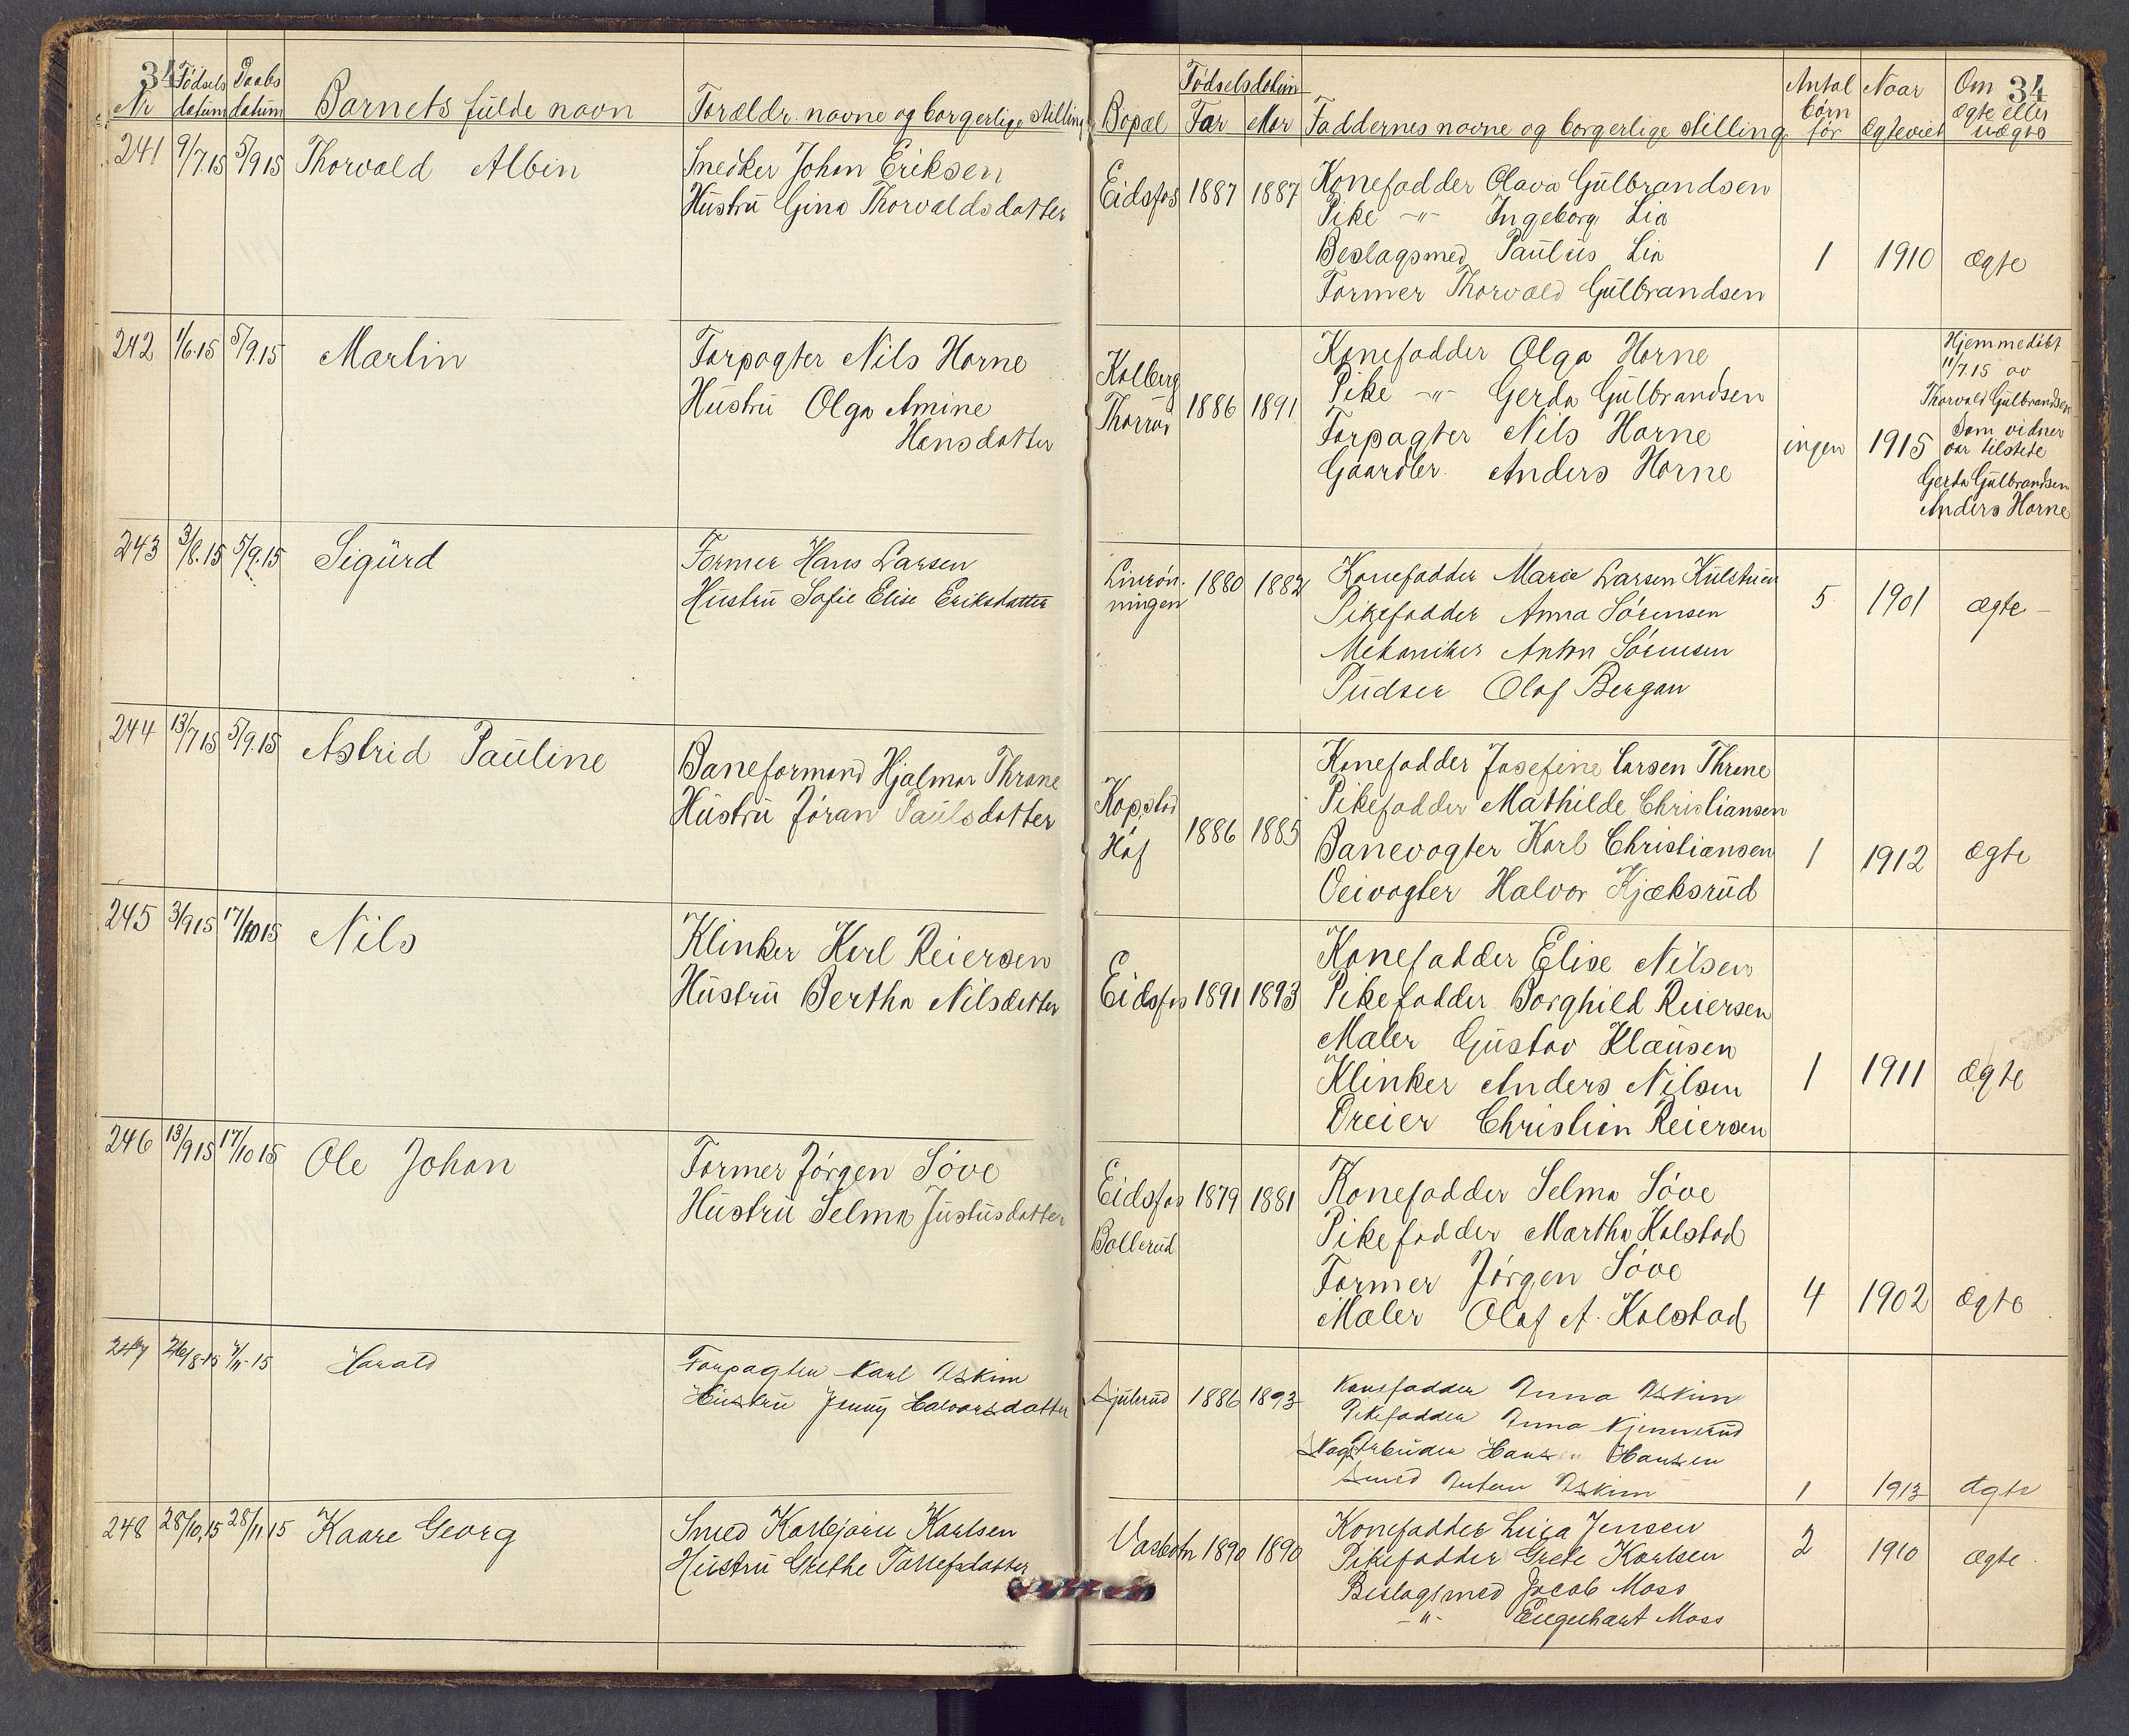 34
Nr
Fødsels datum
Daabs datum
Barnets fulde navn
Forældr. navne og borgerlige stilling
241 9/7.15 5/9 15 Thorvald Albin
Snedker Johan Eriksen
Hüstrü Gina Thorvaldsdatter
242 1/6.15 5/9.15 Martin
Forpagter Nils Horne
Hüstrü Olga Amine
Hansdatter
243 3/8.15 5/9.15 Sigürd
Former Hans Larsen
Hüstrü Sofie Elise Eriksdatter
244 13/7 15 5/9.15 Astrid Paüline
Baneformand Hjalmar Throne
Hüstrü Jøran Paülsdatter
245 3/9 15 17/10 15 Nils
Klinker Karl Reiersen
Hüstrü Bertha Nilsdatter
246 13/9 15 17/10 15 Ole Johan
Former Jørgen Søve
Hüstrü Selma Jüstüsdatter
247 26/8-15 7/11-15 Harald
Forpagter Karl Askim
Hüstrü Jenny Halvorsdatter
248 28/10.15 28/11 15 Kaare Georg
Smed Karbjørn Karlsen
Hüstrü Grethe Tallefsdatter
34
Bopæl
Fødselsdatum
Far Mor
Faddernes navne og borgerlige stilling
Antal børn før
Naar ægteviet
Om ægte eller uægte
Eidsfos 1887 1887 Konefadder Olava Gülbrandsen
Pike -"- Ingeborg Lia
Beslagsmed Paülüs Lia 1 1910 ægte
Former Thorvald Gülbrandsen
Kolberg
Thorrud 1886 1891
Konefadder Olga Horne
Pike -"- Gerda Gülbrandsen
Forpagter Nils Horne
Gaardbr. Anders Horne
ingen 1915
Hjemmedøbt
11/7.15 av
Thorvald Gülbrandsen
Som vidner
var tilstede
Gerda Gülbrandsen
Anders Horne
Linrøn-
ningen 1880 1882 Konefadder Marie Larsen
Pikefadder Anna Sørensen 5 1901 ægte -
Mekaniker Anton Sørensen
Püdser Olaf Bergan
Kopstad
Hof 1886 1885
Konefadder Josefine Larsen Throne
Pikefadder Mathilde Christiansen
Banevogter Karl Christiansen 1 1912 ægte
Veivogter Halvor Kjæksrüd
Eidsfos 1891 1893
Konefadder Elise Nilsen
Pikefadder Borghild Reiersen
Maler Güstav Klaüsen
Klinker Anders Nilsen 1 1911 ægte
Dreier Christian Reiersen
Eidsfos 1879 1881
Bollerüd
Konefadder Selma Søve
Pikefadder Martha Kolstad
Former Jørgen Søve
Maler Olaf A. Kolstad 4 1902 ægte
Sjülerüd 1886 1893 Konefadder Anna Askim
Pikefadder Anna Kjennerüd
Skogarbeider Hans Hansen
Smed Anton Askim 1 1913 ægte
Vasbotn 1890 1890 Konefadder Luisa Jensen
Pikefadder Grete Karlsen 2 1910 ægte.
Beslagsmed Jacob Moss
-"- Engelhart Moss